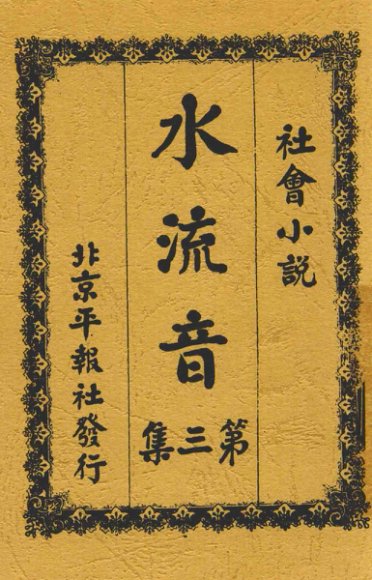 社會小説
水流音
第三集
北京平報社發行